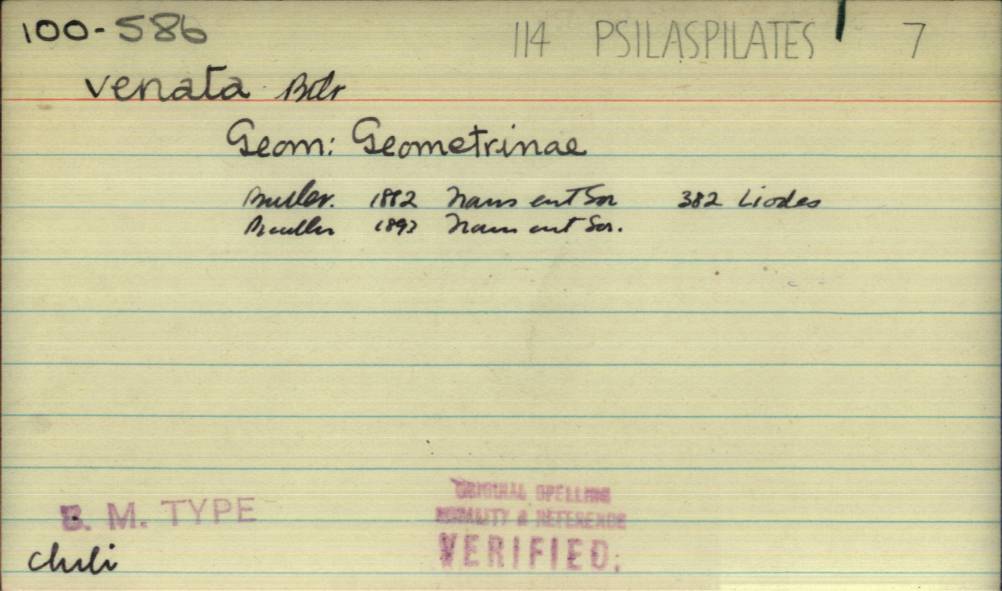 100-586 114 PSILASPILATES 7
venata Btlr
Geom: Geometrinae
Butler. 1882 Trans ent Soc 382 Liodes
Butler 1893 Trans ent Soc.
B. M. TYPE
ORIGINAL SPELLING
LOCALITY & REFERENCE
VERIFIED.
Chili